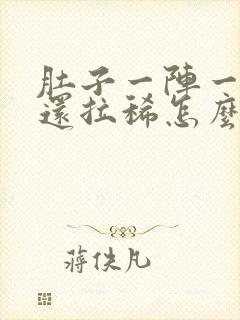 肚子一陣一
還拉稀怎麼
蔣佚凡